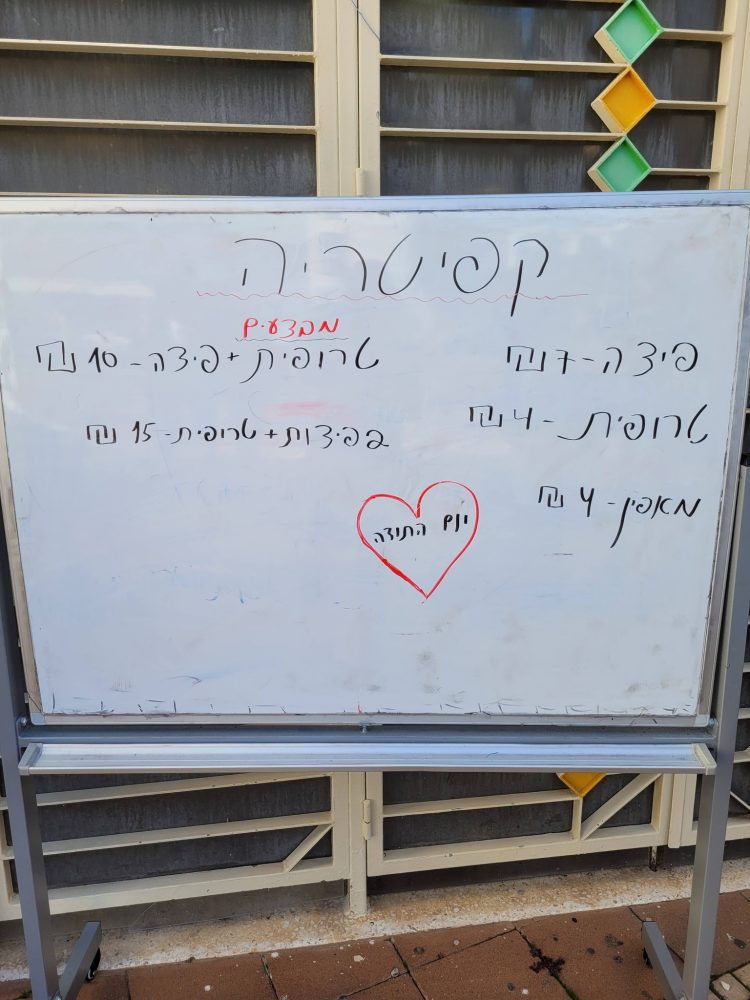 קפיטריה
פיצה - 7 ₪
טרופית - 4 ₪
מאפין - 4 ₪
מבצעים
טרופית + פיצה - 10 ₪
2 פיצות + טרופית - 15 ₪
יום התודה